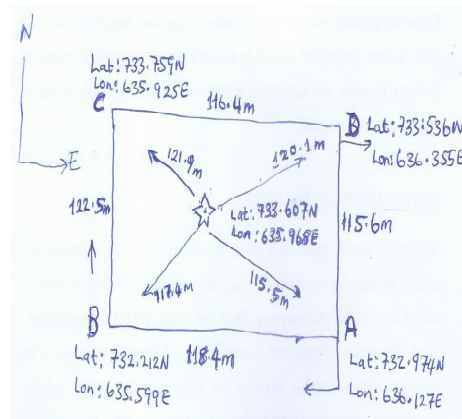 N
E
Lat: 733.759N
Lon: 635.925E
C
116.4m
D
Lat: 733.536N
Lon: 636.355E
121.9m
120.1m
122.5m
Lat: 733.607N
Lon: 635.968E
115.6m
115.5m
B
A
Lat: 732.212N
Lon: 635.599E
118.4m
Lat: 732.974N
Lon: 636.127E